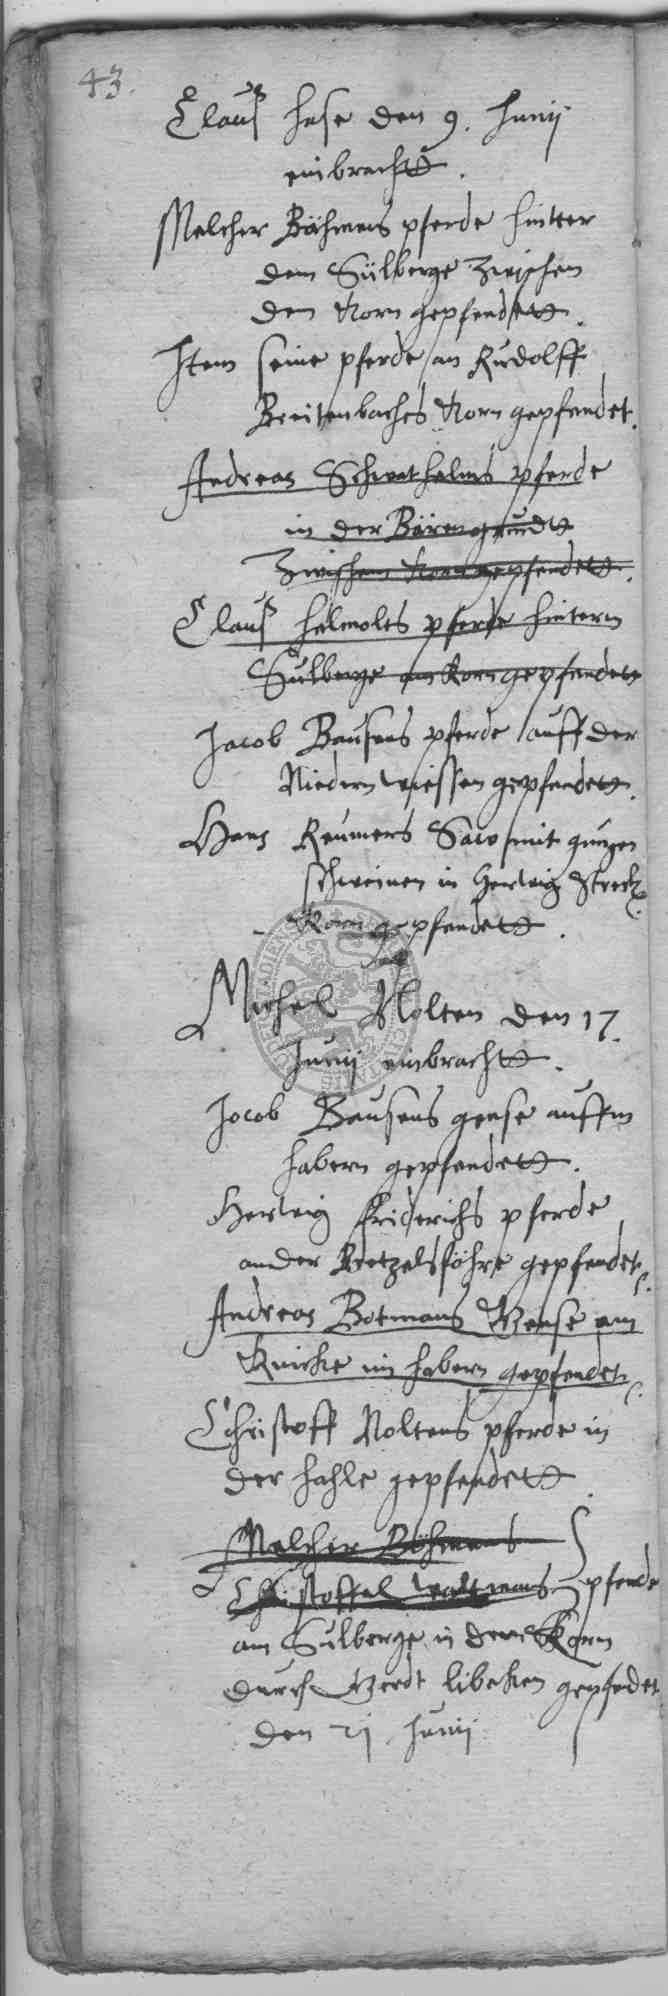 43.
Clauß Hase den 9. Junij
einbracht.
Melcher Böhmens pferde hinter
dem Sülberge zwischen
den Korn gepfendett.
Item seine pferde an Rudolff
Breitenbachs Korn gepfendet.
Andreas Schwathelms pferde
in der Bärengrundt
Zwischen Korn gepfendett.
Clauß Helmolts pferde hinterm
Sulberge am Korn gepfendett
Jacob Bausens pferde auff der
Niedern wiessen gepfendett.
Hans Reumers Saw mit
schweinen in Herwig
Korn gepfendett.
Michel Nolten den 17.
Junij einbracht.
Jocob Bausens gense auffm
habern gepfendett.
Herwig Friderichs pferde
ander gepfendet.
Andreas Botmans Gense am
Knicke im habern gepfendet.
Christoff Noltens pferde in
der hahle gepfendett.
Melcher Böhmens
Christoffel pferde
am Sulberge in dem Korn
durch libeken gepfendet
den 21 Junij